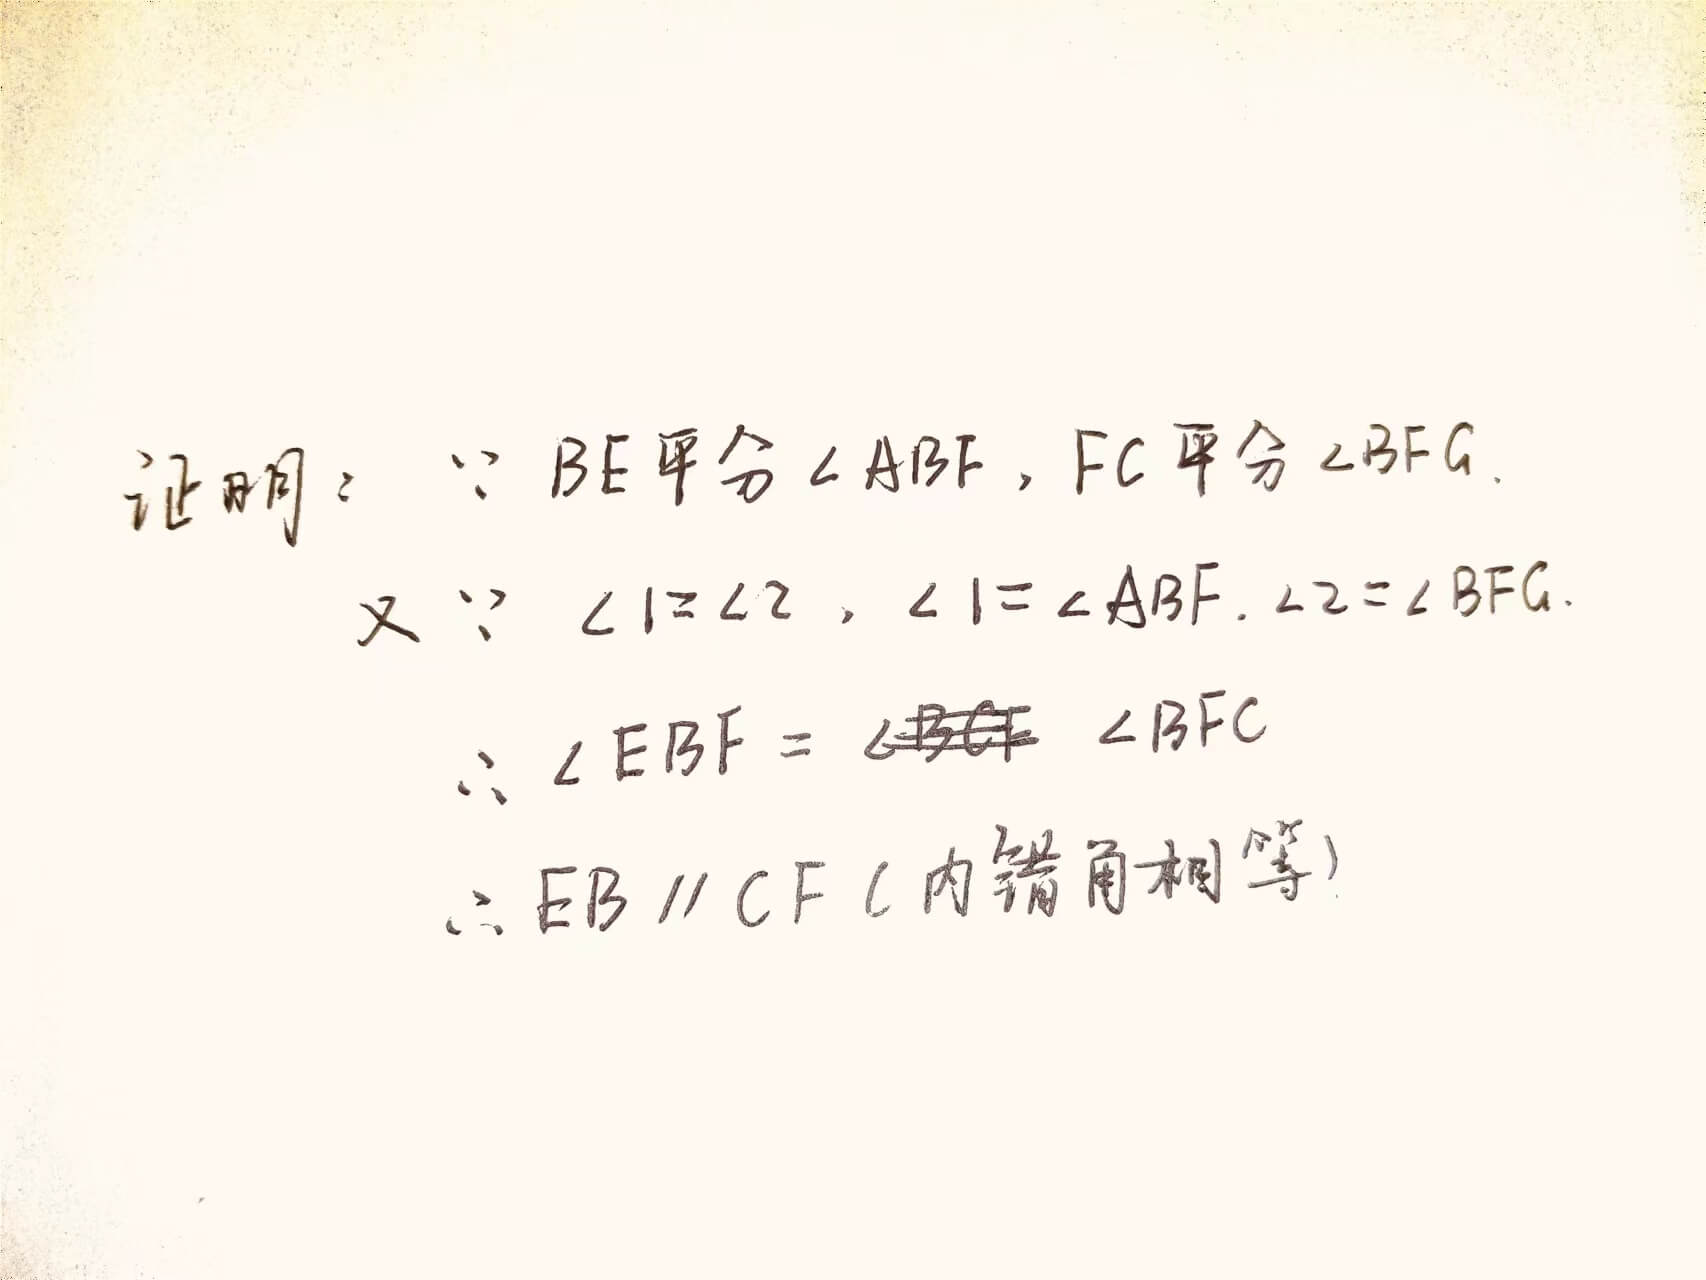 证明: ∵ BE平分∠ABF, FC平分∠BFG.
又∵ ∠1=∠2, ∠1=∠ABF. ∠2=∠BFG.
∴ ∠EBF = ∠BCF ∠BFC
∴ EB∥CF (内错角相等)